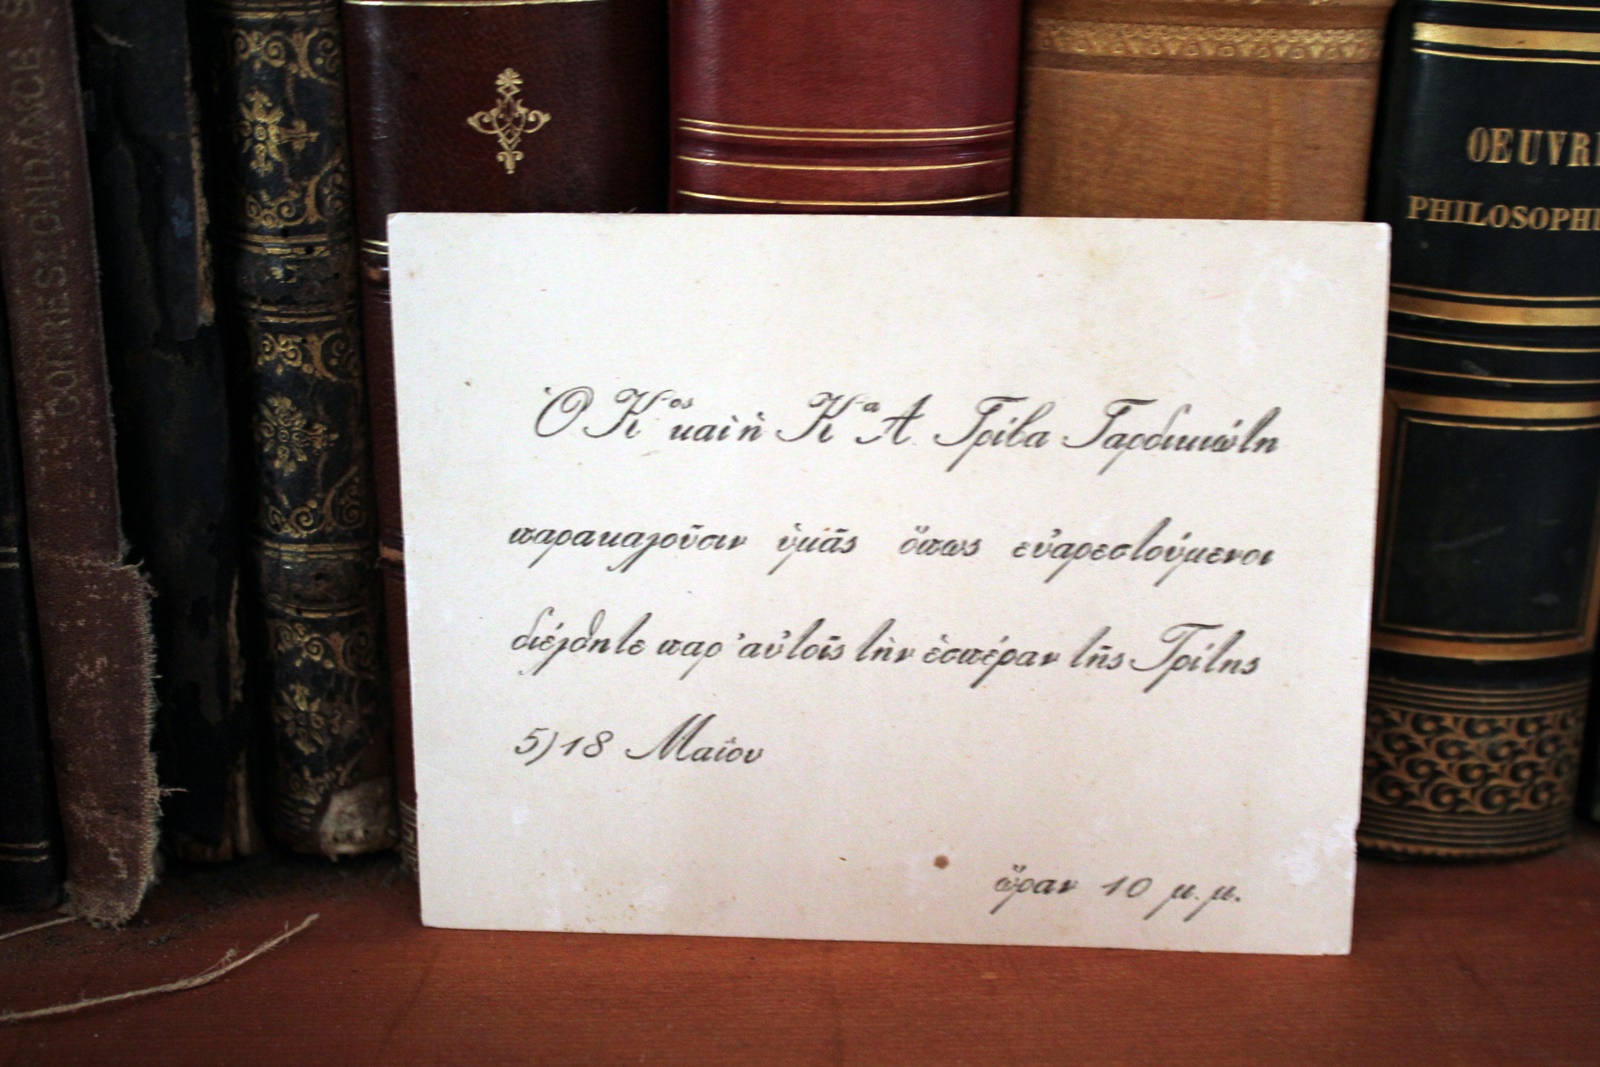 CORRESPONDANCE
OEUVR
PHILOSOPHI
Ὁ Κος καὶ ἡ Κα Α. Γρίβα Γαρδικιώτη
παρακαλοῦσιν ὑμᾶς ὅπως εὐαρεστούμενοι
διέλθητε παρ' αὐτοῖς τὴν ἑσπέραν τῆς Τρίτης
5)18 Μαΐου
ὥραν 10 μ.μ.